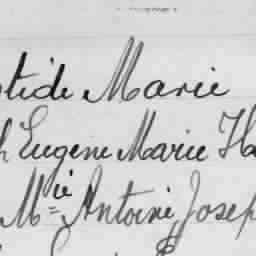 tide Marie
h Eugene Marie Ha
Mie Antoine Josep